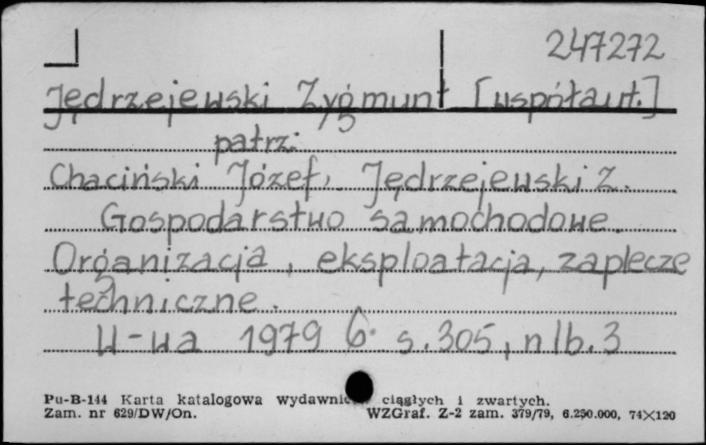 247272
Jędrzejewski Zygmunt [współaut.]
patrz:
Chaciński Józef, Jędrzejewski Z.
Gospodarstwo samochodowe.
Organizacja, eksploatacja, zaplecze
techniczne.
W-wa 1979 8° s. 305, nlb. 3
Pu-B-144 Karta katalogowa wydawnic ciągłych i zwartych.
Zam. nr 629/DW/On. WZGraf. Z-2 zam. 379/79, 6.250.000, 74×120